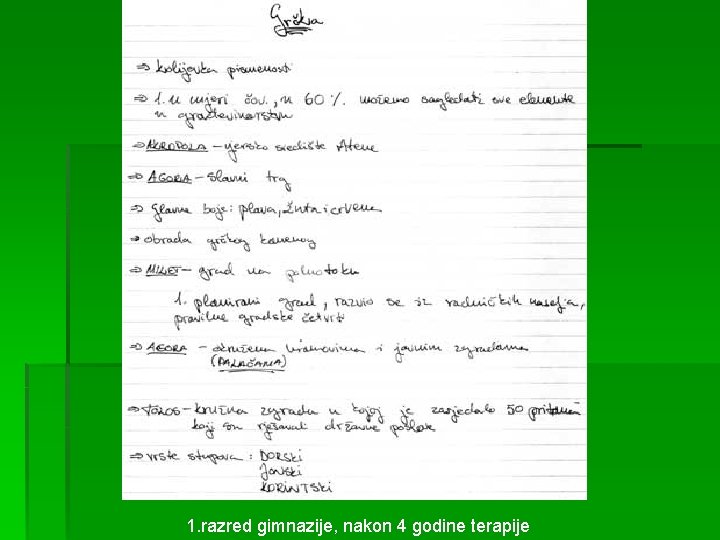 Grčka
⇒ kolijevka pismenosti
⇒ 1. u mjeri čov., u 60 %. možemo sagledati sve elemente
u građevinarstvu
⇒ AKROPOLA – vjersko središte Atene
⇒ AGORA – Glavni trg
⇒ Glavne boje: plava, žuta i crvena
⇒ obrada grčkog kamenog
⇒ MILET – grad na poluotoku
1. planirani grad, razvio se iz radničkih naselja,
pravilne gradske četvrti
⇒ AGORA – okružena hramovima i javnim zgradama
(PALAČAMA)
⇒ TOLOS – kružna zgrada u kojoj je zasjedalo 50 pritana
koji su rješavali državne poslove
⇒ vrste stupova: DORSKI
JONSKI
KORINTSKI
1. razred gimnazije, nakon 4 godine terapije